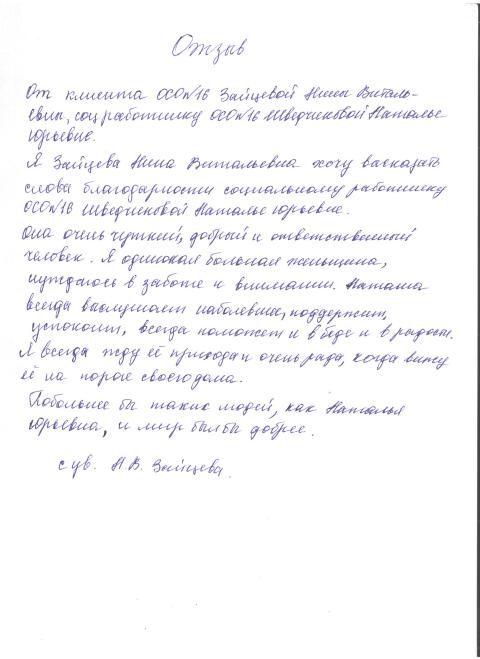 Отзыв
От клиента ОСО№16 Зайцевой Нины Виталь-
евны, соцработнику ОСО№16 Шведчиковой Наталье
Юрьевне.
Я Зайцева Нина Витальевна хочу высказать
слова благодарности социальному работнику
ОСО№16 Шведчиковой Наталье Юрьевне.
Она очень чуткий, добрый и ответственный
человек. Я одинокая больная женщина,
нуждаюсь в заботе и внимании. Наташа
всегда выслушает наболевшее, поддержит,
успокоит, всегда поможет и в беде и в радости.
Я всегда жду её прихода и очень рада, когда вижу
её на пороге своего дома.
Побольше бы таких людей, как Наталья
Юрьевна, и мир был бы добрее.
с ув. Н.В. Зайцева.